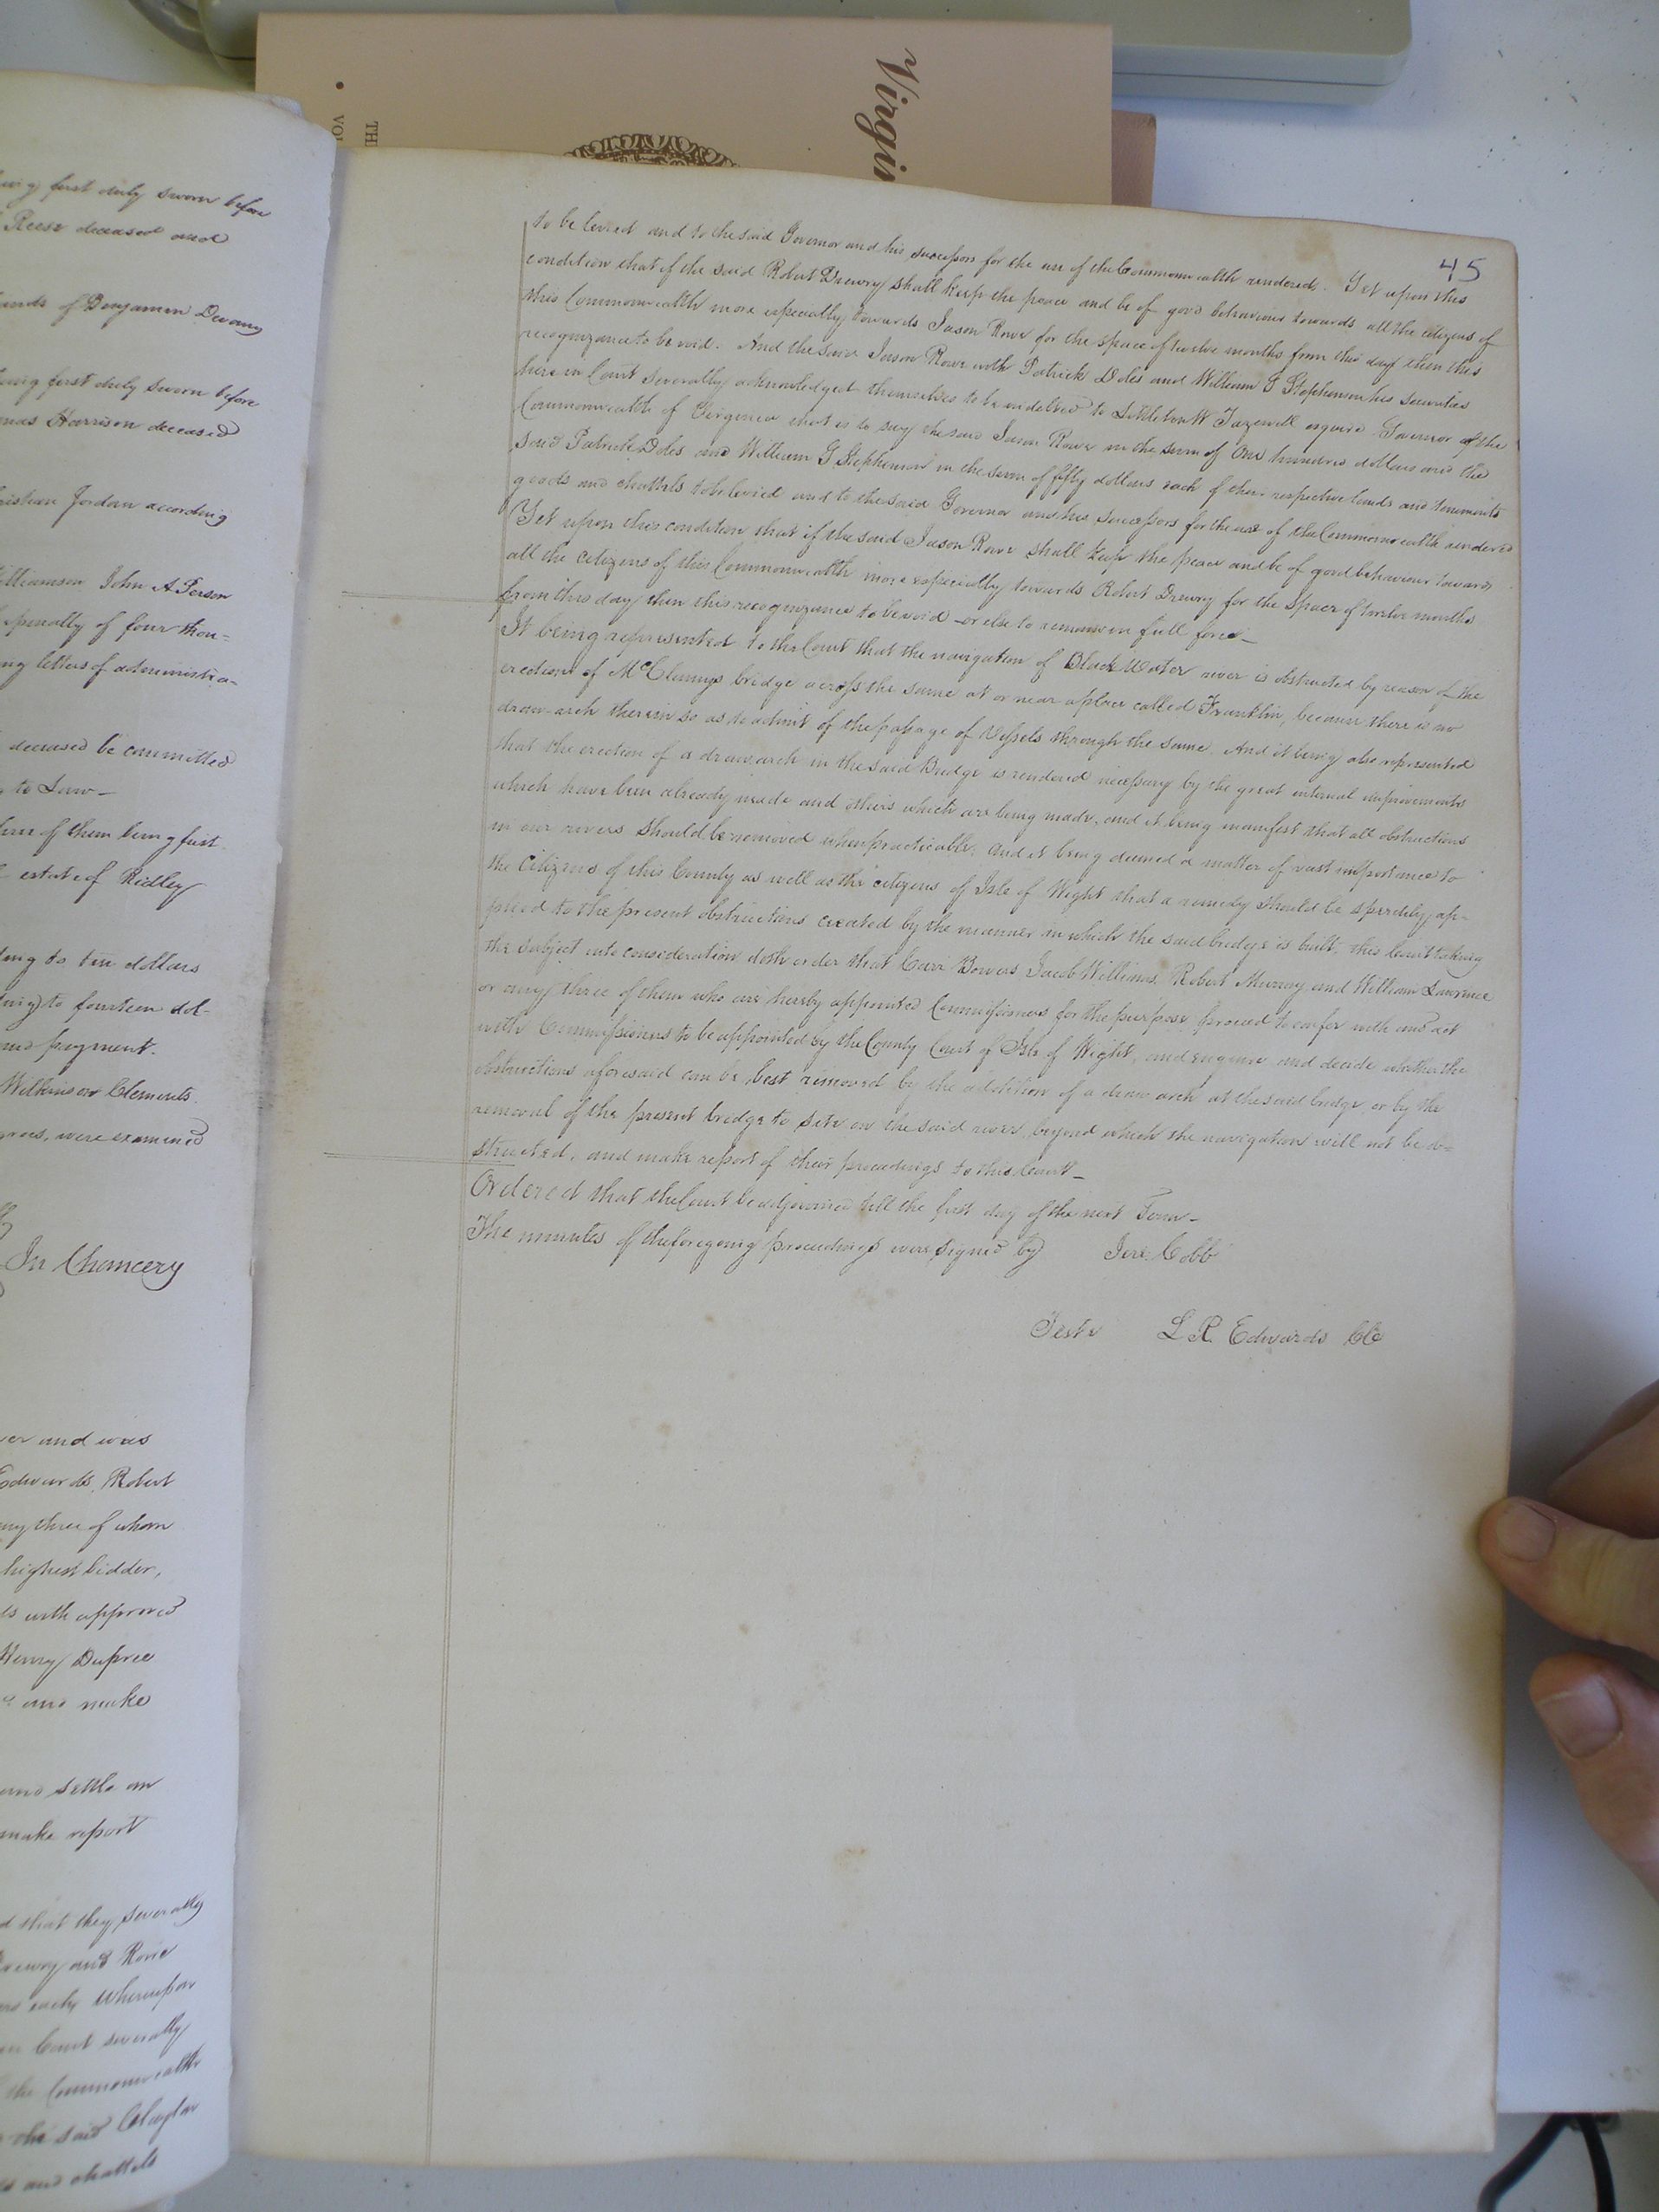 Virgi
TH
VO
ing first duly sworn before
Reese deceased and
ands of Benjamin Devany
being first duly sworn before
mas Harrison deceased
ristian Jordan according
illiamson John A Person
penalty of four thou=
ng letters of administra-
deceased be committed
to Law_
three of them being first
estate of Ridley
ting to ten dollars
ting to fourteen dol-
payment.
Wilkinson Clements.
were examined
In Chancery
er and was
Edwards, Robert
any three of whom
highest bidder,
ds with approved
Henry Dupree
and make
and settle an
make report
d that they severally
Drewry and Rowe
each, Whereupon
Court severally
the Commonwealth
the said
and chattels
45
to be levied and to the said Governor and his successors for the use of the Commonwealth rendered. Yet upon this
condition that if the said Robert Drewry shall keep the peace and be of good behaviour towards all the citizens of
this Commonwealth more especially towards Jason Rowe for the space of twelve months from this day then this
recognizance to be void. And the said Jason Rowe with Patrick Doles and William G Stephenson his securities
here in Court severally acknowledged themselves to be indebted to Littleton W Tazewell esquire Governor of the
Commonwealth of Virginia that is to say the said Jason Rowe in the sum of One hundred dollars and the
said Patrick Doles and William G Stephenson in the sum of fifty dollars each of their respective lands and tenements
goods and chattels to be levied and to the said Governor and his successors for the use of the Commonwealth rendered
Yet upon this condition that if the said Jason Rowe shall keep the peace and be of good behaviour towards
all the citizens of this Commonwealth more especially towards Robert Drewry for the space of twelve months
from this day then this recognizance to be void or else to remain in full force_
It being represented to the Court that the navigation of Black Water river is obstructed by reason of the
erection of McClennys bridge across the same at or near a place called Franklin, because there is no
draw-arch therein so as to admit of the passage of Vessels through the same. And it being also represented
that the erection of a draw arch in the said Bridge is rendered necessary by the great internal improvements
which have been already made and others which are being made, and it being manifest that all obstructions
in our rivers should be removed when practicable. And it being deemed a matter of vast importance to
the Citizens of this County as well as the citizens of Isle of Wight that a remedy should be speedily ap-
plied to the present obstructions created by the manner in which the said bridge is built, this Court taking
the subject into consideration doth order that Carr Bowers Jacob Williams, Robert Murray and William Lawrence
or any three of them who are hereby appointed Commissioners for the purpose, proceed to confer with and act
with Commissioners to be appointed by the County Court of Isle of Wight, and enquire and decide whether the
obstructions aforesaid can be best removed by the addition of a draw arch at the said bridge, or by the
removal of the present bridge to site on the said river, beyond which the navigation will not be ob=
structed, and make report of their proceedings to this Court_
Ordered that the Court be adjourned till the first day of the next Term_
The minutes of the foregoing proceedings were signed by Jere: Cobb
Teste L R. Edwards CC